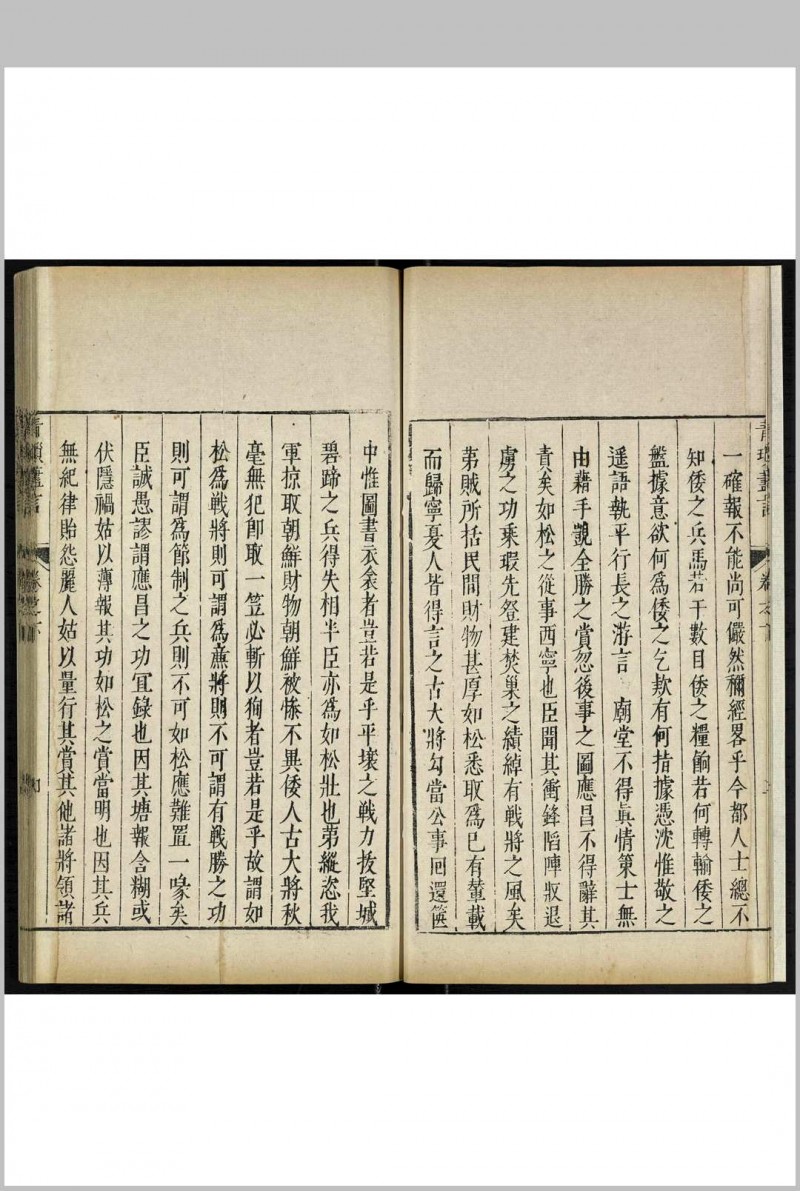 一確報不能尚可儼然禰經畧乎今都人士總不
知倭之兵馬若干數目倭之糧餉若何轉輸倭之
盤據意欲何為倭之乞欵有何指據憑沈惟敬之
遥語執平行長之游言　廟堂不得眞情策士無
由藉手覬全勝之賞忽後事之圖應昌不得辭其
責矣如松之從事西寧也臣聞其衝鋒陷陣㪚退
虜之功乘瑕先登建焚巢之績綽有戦將之風矣
第賊所括民間財物甚厚如松悉取爲已有輦載
而歸寧夏人皆得言之古大將勾當公事囘還篋
中惟圖書衣衾者豈若是乎平壤之戦力抜堅城
碧蹄之兵得失相半臣亦爲如松壯也第縱恣我
軍掠取朝鮮財物朝鮮被慘不異倭人古大將秋
毫無犯卽取一笠必斬以狥者豈若是乎故謂如
松爲戦將則可謂爲亷將則不可謂有戦勝之功
則可謂爲節制之兵則不可如松應難置一喙矣
臣誠愚謬謂應昌之功冝錄也因其塘報含糊或
伏隱禍姑以薄報其功如松之賞當明也因其兵
無紀律貽怨麗人姑以量行其賞其他諸將領諸